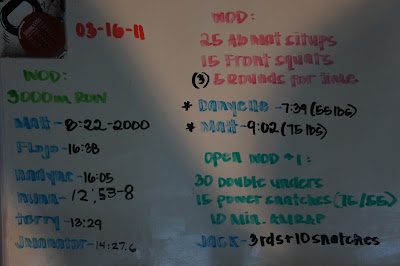 03-16-11
WOD:
3000m RUN
Matt - 8:22-2000
Flojo - 16:38
Nadyne - 16:05
12:53-8
Terry - 13:29
14:27.6
WOD:
25 AbMat situps
15 Front squats
(3) 5 Rounds for time
* Danyelle - 7:39 (55 lbs)
* Matt - 9:02 (75 lbs)
OPEN WOD #1:
30 Double unders
15 power snatches (75/55)
10 Min. AMRAP
Jack - 3rds+10 snatches